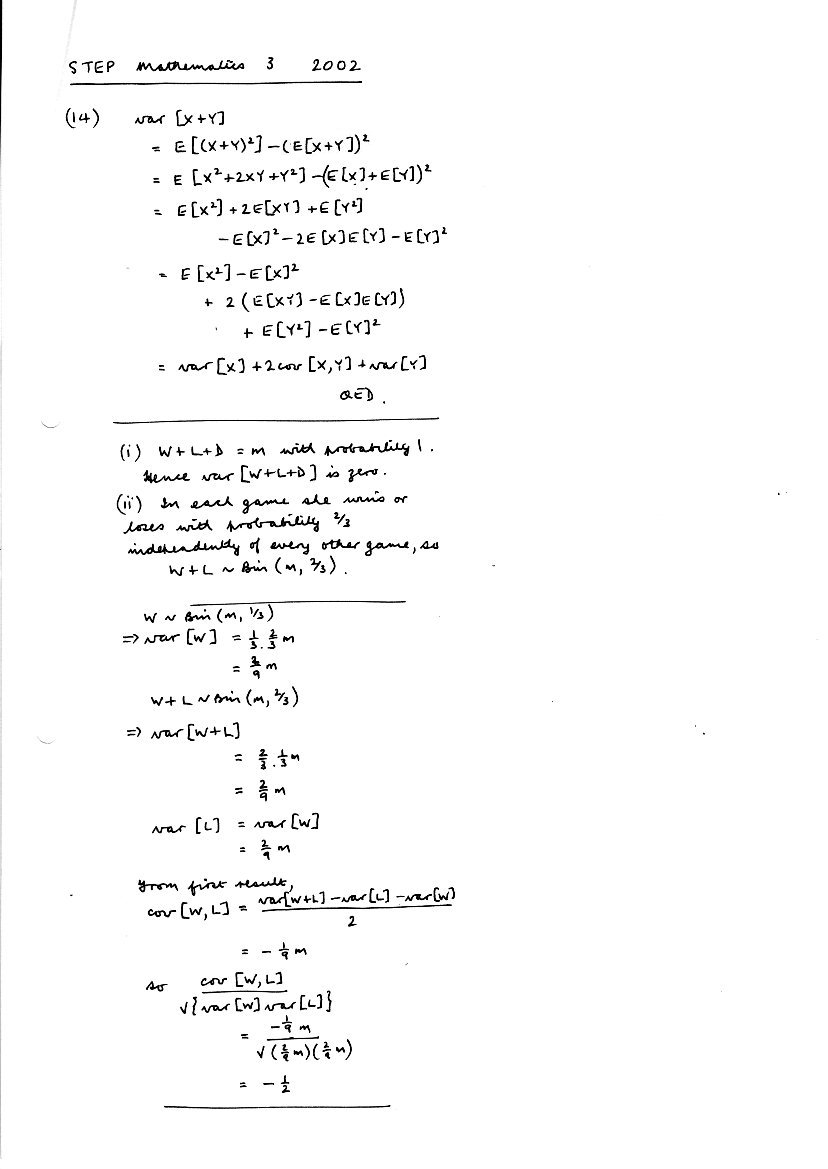 STEP Mathematics 3 2002
(14) var [X+Y]
= E[(X+Y)²]-(E[X+Y])²
= E [X²+2XY+Y²]-(E[X]+E[Y])²
= E[X²]+2E[XY]+E[Y²]
-E[X]²-2E[X]E[Y]-E[Y]²
= E[X²]-E[X]²
+ 2(E[XY]-E[X]E[Y])
+ E[Y²]-E[Y]²
= var[X]+2cov[X,Y]+var[Y]
QED.
(i) W+L+D = n with probability 1.
Hence var [W+L+D] is zero.
(ii) In each game she wins or
loses with probability 2/3
independently of every other game, so
W+L ~ Bin (n, 2/3).
W ~ Bin (n, 1/3)
=> var [W] = 1/3 . 2/3 n
= 2/9 n
W+L ~ Bin (n, 2/3)
=> var [W+L]
= 2/3 . 1/3 n
= 2/9 n
var [L] = var [W]
= 2/9 n
From first result,
cov [W,L] = (var[W+L]-var[L]-var[W])/2
= - 1/9 n
so cov [W,L] / √{var[W]var[L]}
= -1/9 n / √(2/9 n)(2/9 n)
= - 1/2